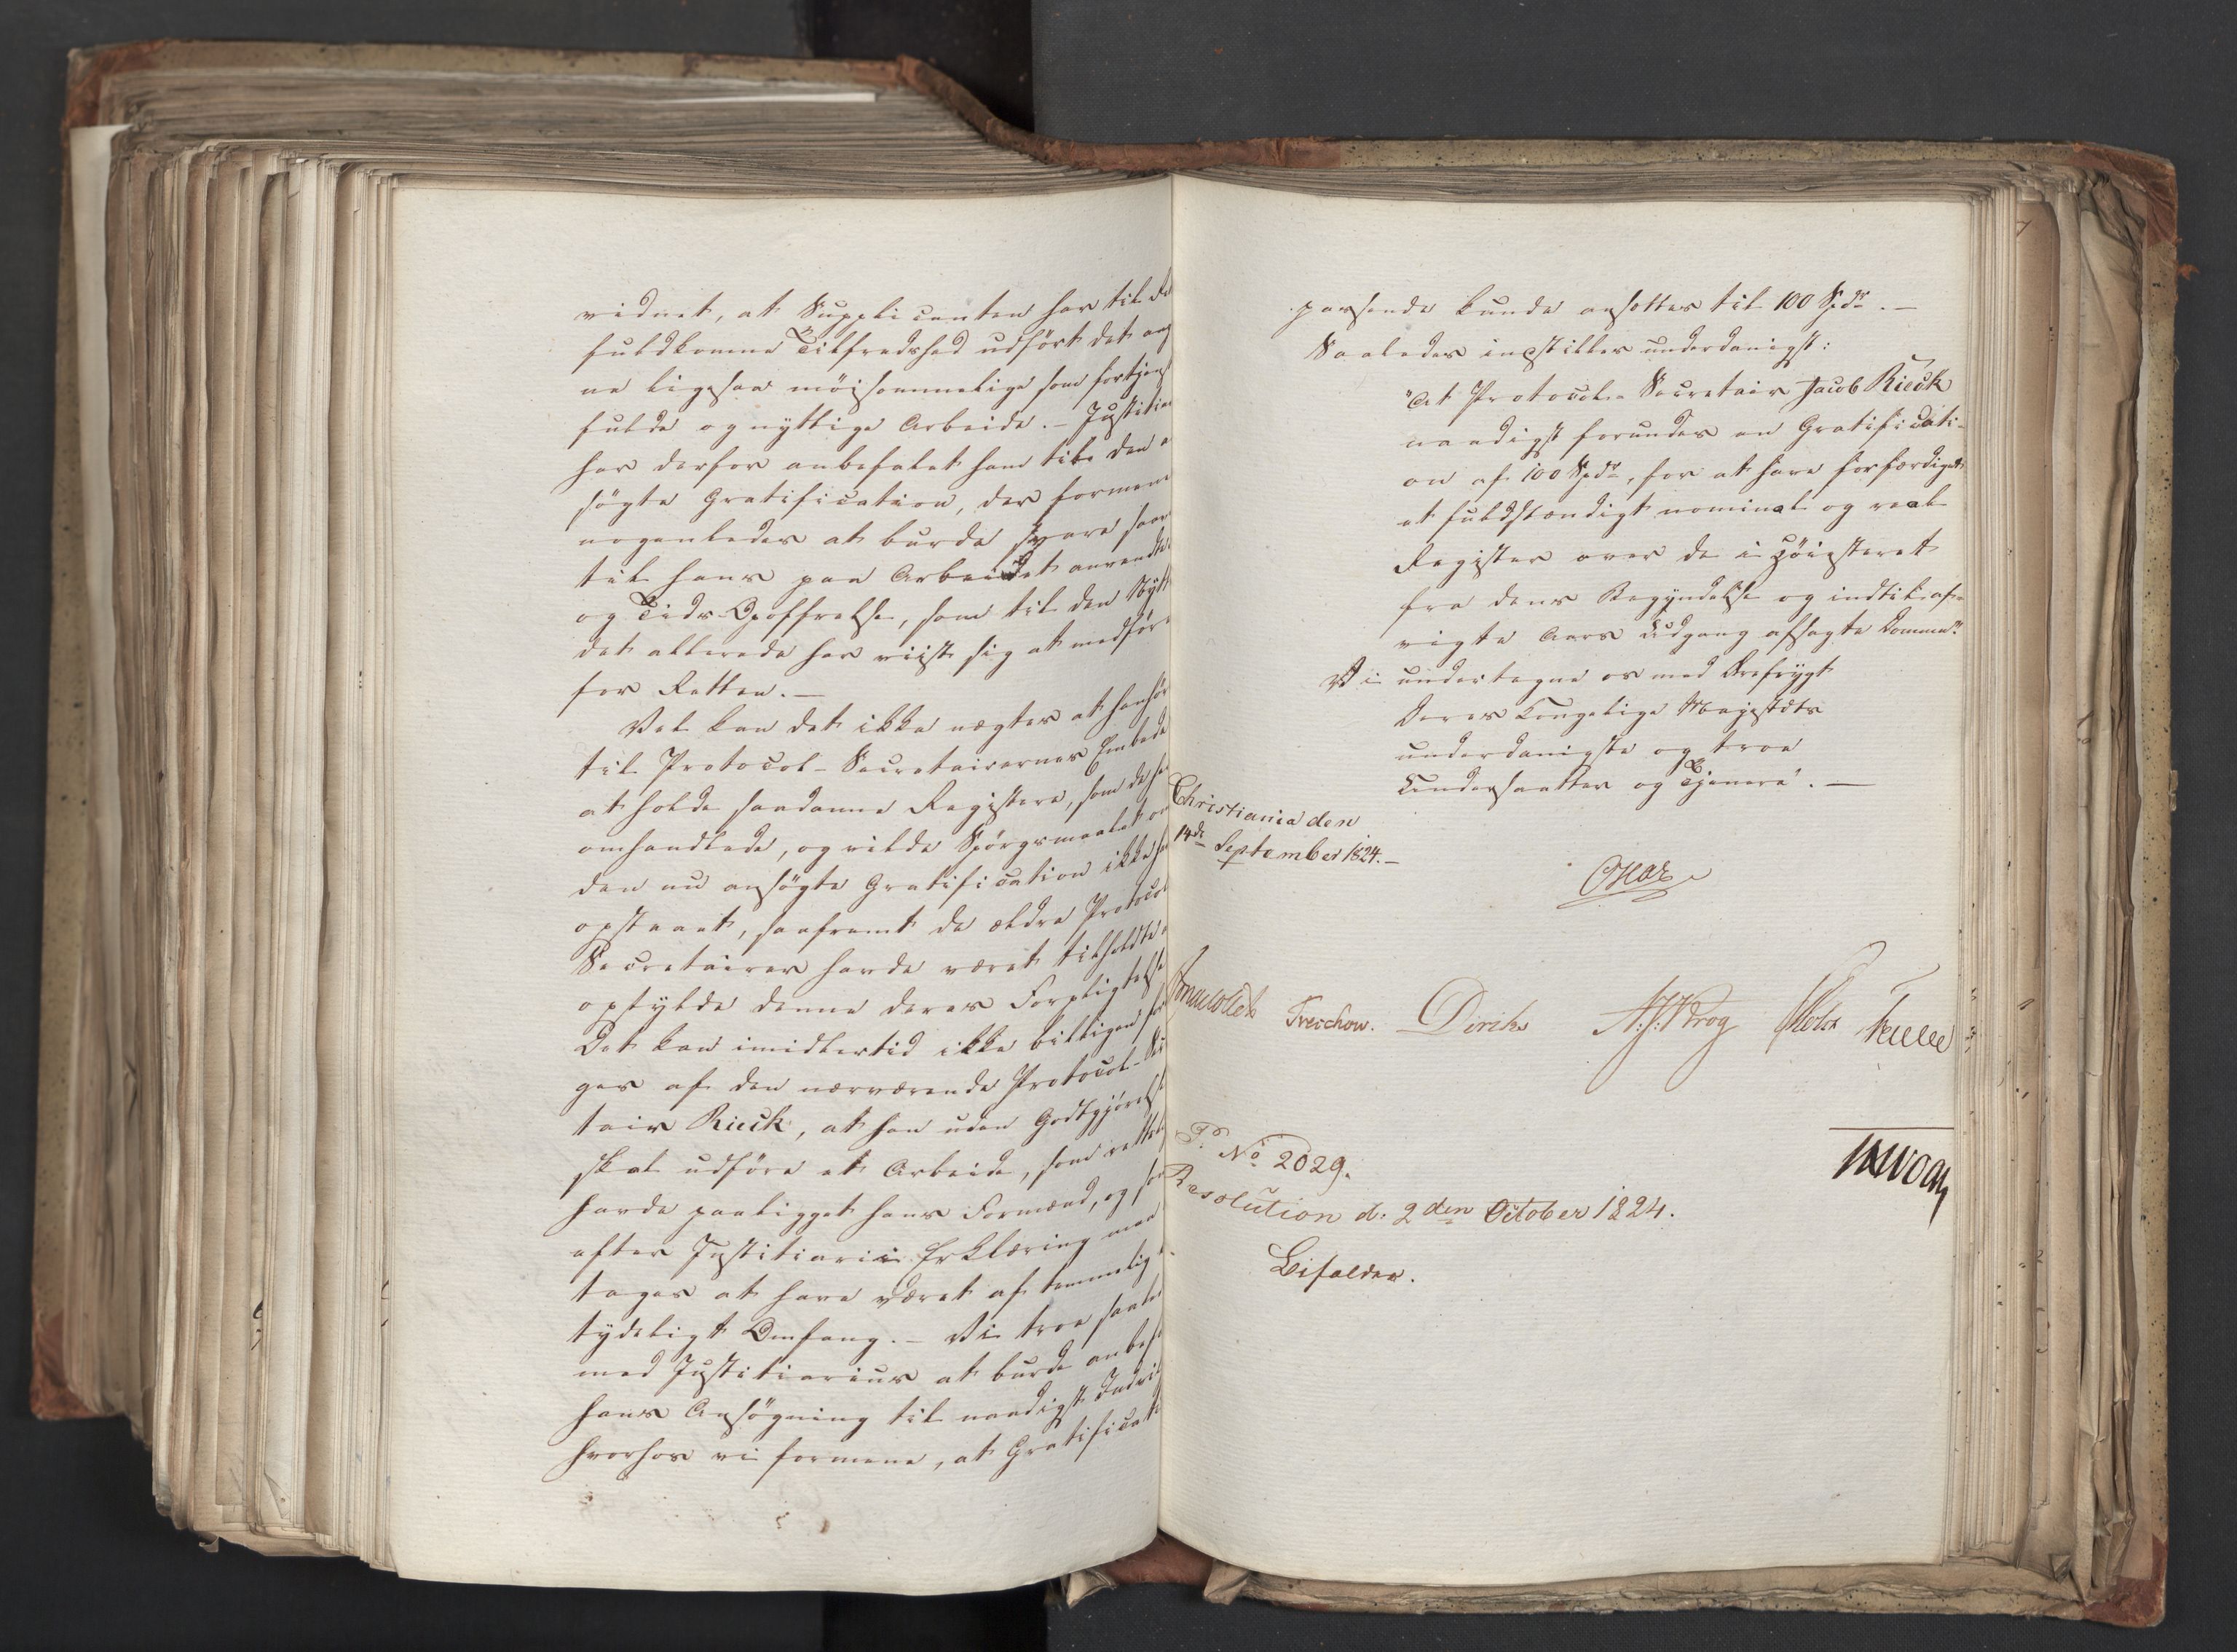 vidnet, at Supplicanten har til
fuldkomne Tilfredshed udført det
ne ligesaa møisommelige som fortjenst
fulde og nyttige Arbeide. – Justitia
har derfor anbefalet ham til den
søgte Gratification, der formene
nogenledes at burde svare saa
til hans paa Arbeidet anvendte
og Tids-Opoffrelse, som til den Nytte
det allerede har viist sig at medføre
for Retten. –
Vel kan det ikke negtes at henhøre
til Protocol-Secretairernes Embede
at holde saadanne Registere, som de
omhandlede, og vilde Spørgsmaalet om
den nu ansøgte Gratification ikke
opstaaet, saafremt de ældre Protocol
Secretairer havde været tilholdte
opfylde denne deres Forpligtelse
Det kan imidlertid ikke billigen
ges af den nærværende Protocol-Se
tair Rieck, at han uden Godtgjørelse
skal udføre et Arbeide, som rettel
havde paaligget hans Formænd, og
efter Justitiarii Erklæring maa
tages at have været af temmelig
tydeligt Omfang. – Vi troe saale
med Justitiarius at burde anbef
hans Ansøgning til naadigst
hvorhos vi formene, at Gratificati
passende kunde ansættes til 100 Spdr. –
Saaledes indstilles underdanigst:
"At Protocol-Secretair Jacob Rieck
naadigst forundes en Gratificati-
on af 100 Spdr, for at have forfærdiget
et fuldstændigt nominal og real
Register over de i Høiesteret
fra dens Begyndelse og indtil af-
vigte Aars Udgang afsagte Domme."
Vi undertegne os med Ærefrygt
Deres Kongelige Majestæts
underdanigste og troe
Undersaatter og Tjenere. –
Christiania den
14de September 1824. –
Oscar
Treschow. Diriks A. J. Krog
P. No 2029.
Resolution d. 2den October 1824.
Bifaldes.